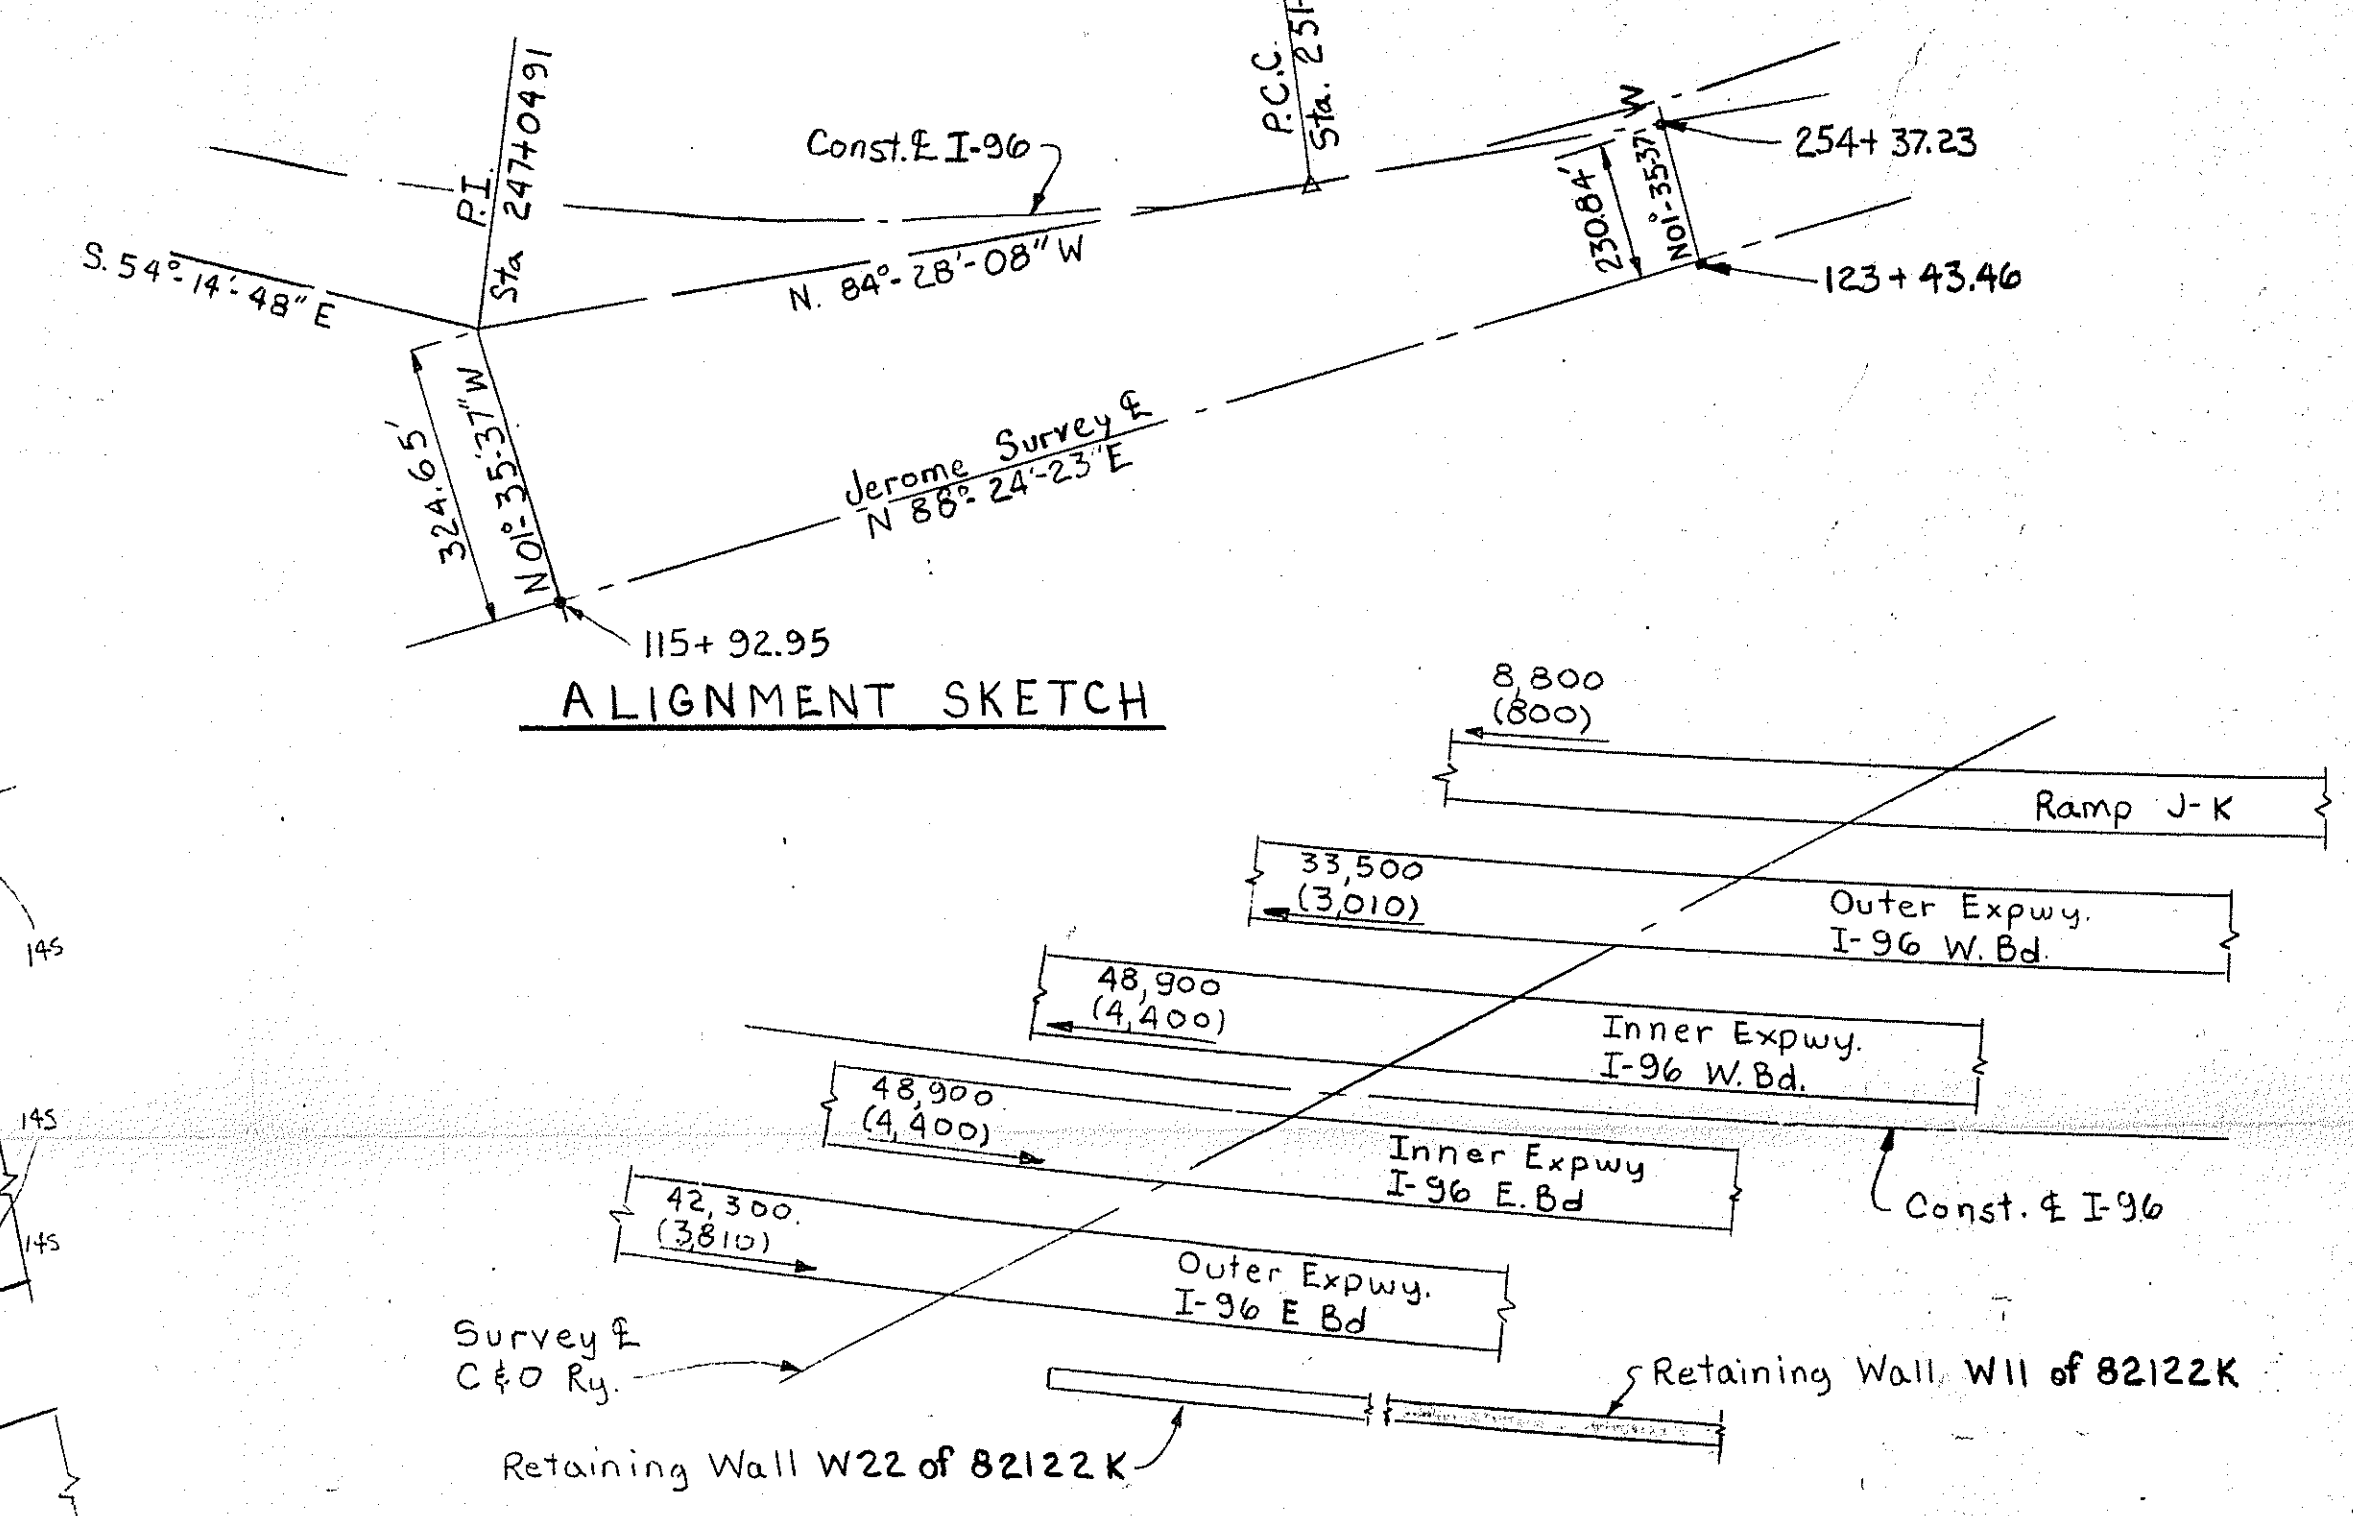 P.I.
Sta 247+04.91
P.C.C.
Sta. 251+
Const. ℄ I-96
S. 54°-14'-48" E
N. 84°-28'-08" W
230.84'
N01°-35'-37" W
254+ 37.23
123 + 43.46
324.65'
N 01°-35'-37" W
Jerome Survey ℄
N 88°-24'-23" E
115+ 92.95
ALIGNMENT SKETCH
8,800
(800)
Ramp J-K
33,500
(3,010)
Outer Expwy.
I-96 W. Bd.
48,900
(4,400)
Inner Expwy.
I-96 W. Bd.
48,900
(4,400)
Inner Expwy
I-96 E. Bd
Const. ℄ I-96
42,300
(3,810)
Outer Expwy.
I-96 E Bd
Survey ℄
C & O Ry.
Retaining Wall W11 of 82122K
Retaining Wall W22 of 82122K
145
145
145